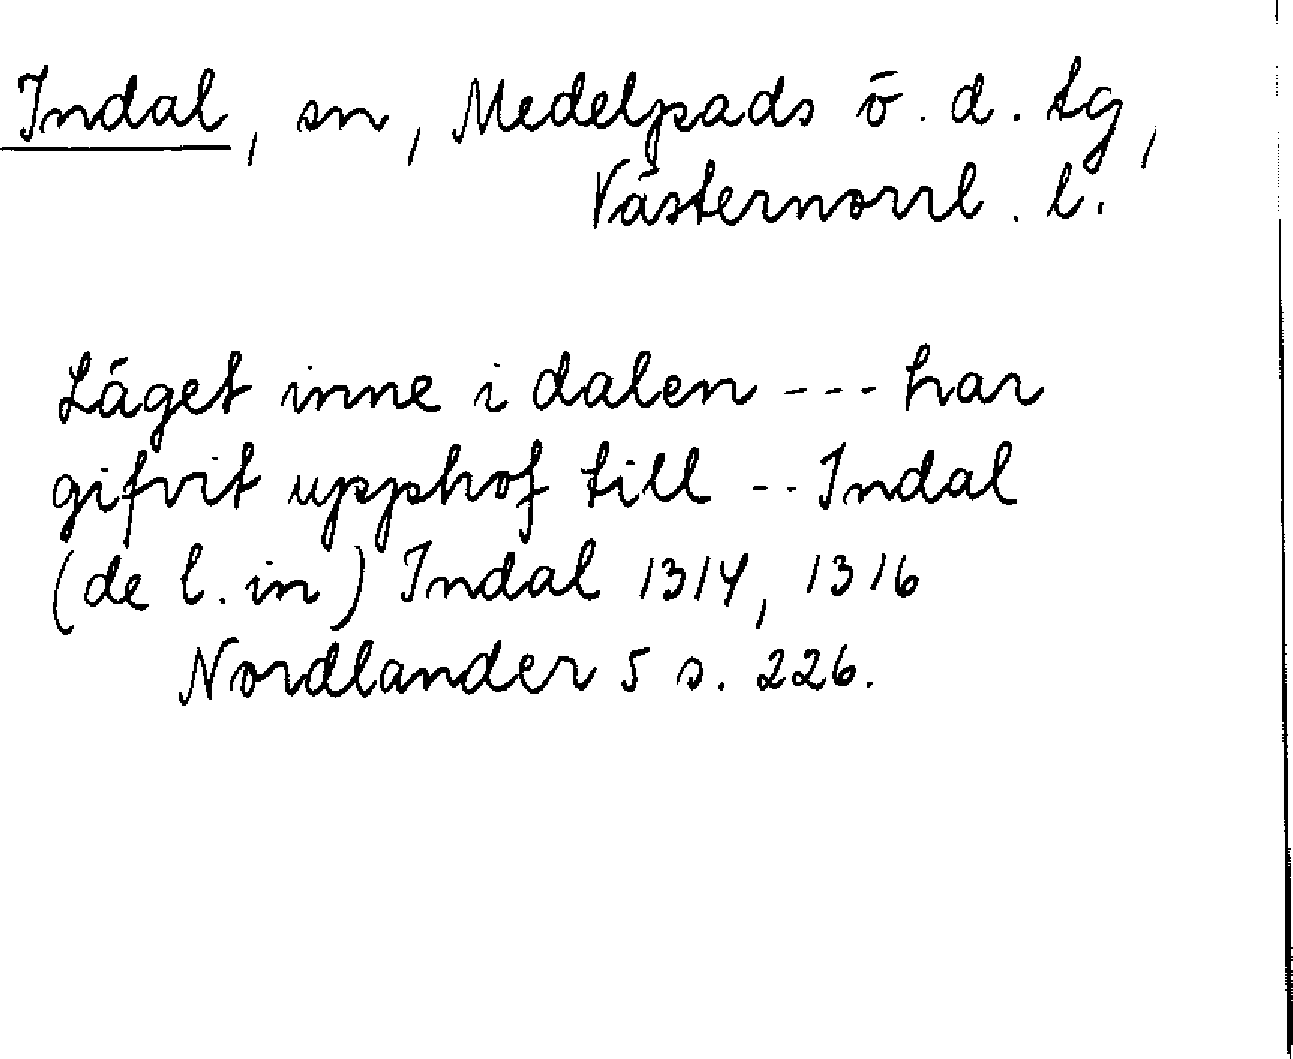 Indal, sn, Medelpads ö. d. tg,
Västernorrl. l.
Läget inne i dalen --- har
gifvit upphof till -- Indal
(de l. in) Indal 1314, 1316
Nordlander 5 s. 226.